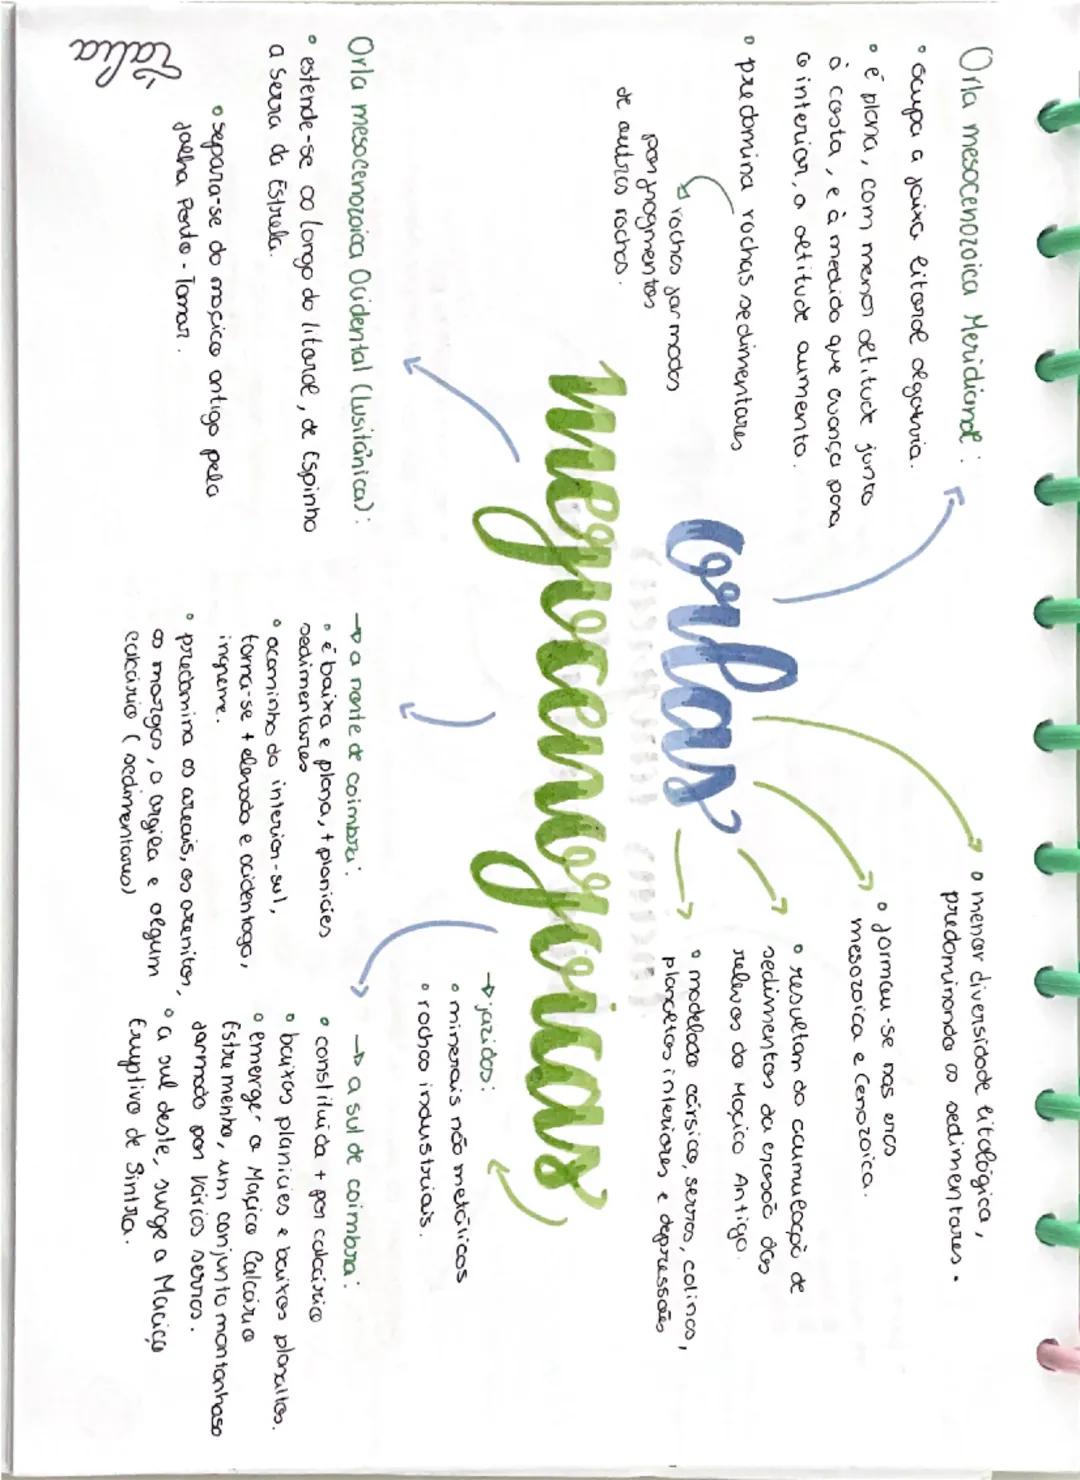 Orla mesocenozoica Meridional:
• ocupa a faixa litoral algarvia.
• é plana, com menor altitude junto
à costa, e à medida que avança para
o interior, a altitude aumenta.
• predomina rochas sedimentares
rochas formadas
por fragmentos
de outras rochas.
orlas
mesocenozoicas
• menor diversidade litológica,
predominando as sedimentares.
• formou-se nas eras
mesozoica e Cenozoica.
• resultam da acumulação de
sedimentos da erosão dos
relevos do Maciço Antigo.
• modelado cársico, serras, colinas,
planaltos interiores e depressões
→ jazidas:
• minerais não metálicos
• rochas industriais.
Orla mesocenozoica Ocidental (Lusitânica):
• estende-se ao longo do litoral, de Espinho
a Serra da Estrela.
• separa-se do maciço antigo pela
falha Porto-Tomar.
→ a norte de coimbra:
• é baixa e plana, + planícies
sedimentares
• acaminho do interior-sul,
torna-se + elevada e acidentada,
ingreme.
• predomina as areais, os arenitos,
as margas, a argila e algum
calcário (sedimentares)
→ a sul de coimbra:
• constituida + por calcário
• baixas planícies e baixos planaltos.
• emerge o Maciço Calcário
Estremenho, um conjunto montanhoso
formado por várias serras.
• a sul deste, surge o Maciço
Eruptivo de Sintra.